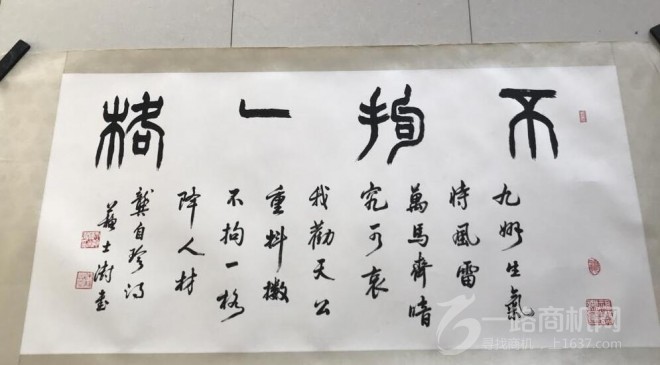 不拘一格
九州生氣
恃風雷
萬馬齊喑
究可哀
我勸天公
重抖擻
不拘一格
降人材
龔自珍詩
蘇士澍書
一路商机网
寻找商机,上1637.com